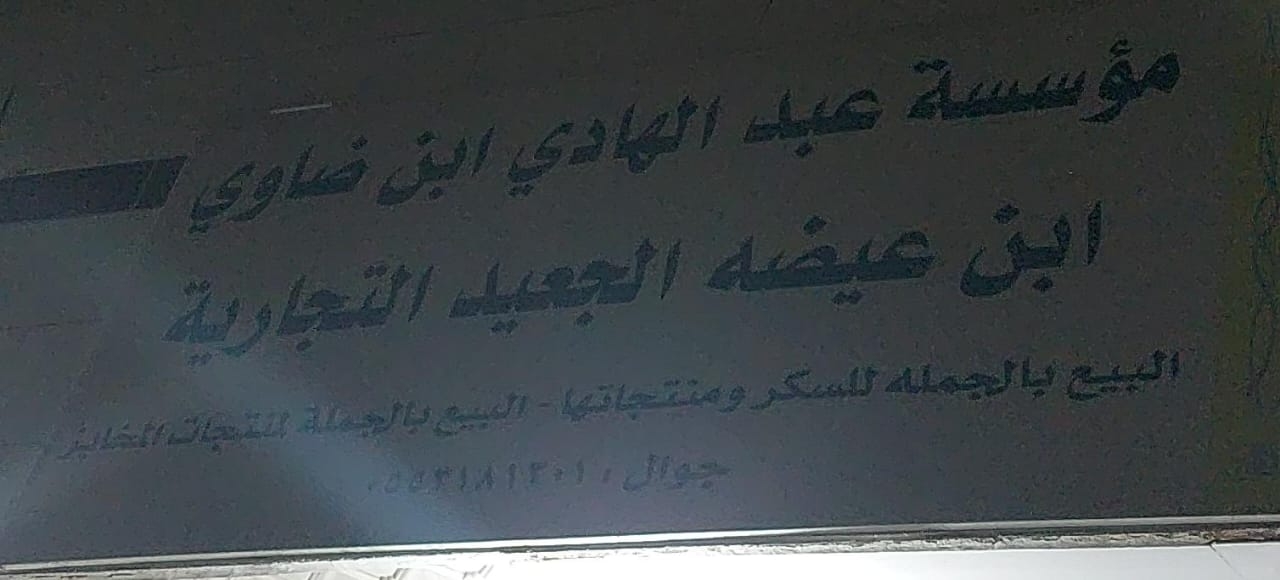 مؤسسة عبد الهادي ابن ضاوي
ابن عيضه الجعيد التجارية
البيع بالجمله للسكر ومنتجاتها - البيع بالجملة لمنتجات المخابز
جوال : ٠٥٥٣١٨١٣٠١